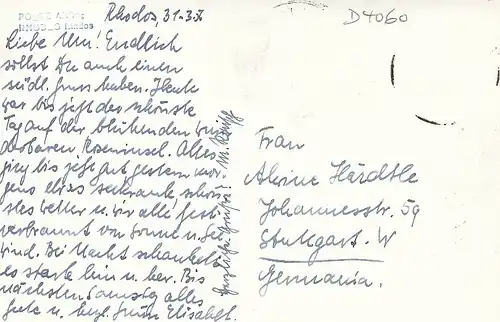 D4060
Rhodos, 31.3.
Liebe
! Endlich
sollst Du auch einen
südl. Gruss haben. Heute
war bis jetzt der schönste
Tag auf der blühenden wun
derbaren Roseninsel. Alles
ging bis jetzt gut gestern mor
gens etwas seekrank, schön
stes Wetter u. wir alle fest
verbrannt von Sonne u. See
wind. Bei Nacht schaukelt
es stark hin u. her. Bis
nächsten Samstag alles
Gute u. herzl. Grüsse Elisabeth.
Herzliche Grüsse!
Frau
Alwine Härdtle
Johannesstr. 59
Stuttgart. W
Germania.